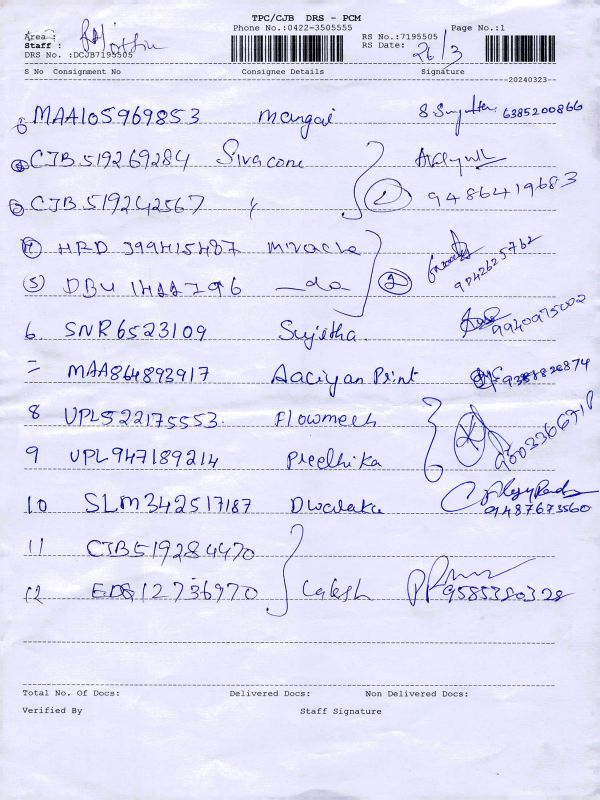 TPC/CJB DRS - PCM
Area :
Phone No.:0422-3505555
Page No.:1
Staff :
RS No.:7195505
DRS No. :DCJB7195505
RS Date: 26/3
S No Consignment No Consignee Details Signature
20240323
1 MAA105969853 Mangai 6385200866
2 CJB519269284 Sivacone
3 CJB519242567 〃 9486419683
4 HRD 399415487 Miracle
5 -do 2 9042625762
6. SNR6523109 Sujitha. 9940975002
= MAA864893917 Aaciyan Print
8 UPL522175553. Flowmech
9 UPL947189214 Preethika 9003366718
10 SLM342517187 Dwaraka 9487673560
11 CJB519284470
12 12736970 9585320328
Total No. Of Docs: Delivered Docs: Non Delivered Docs:
Verified By Staff Signature